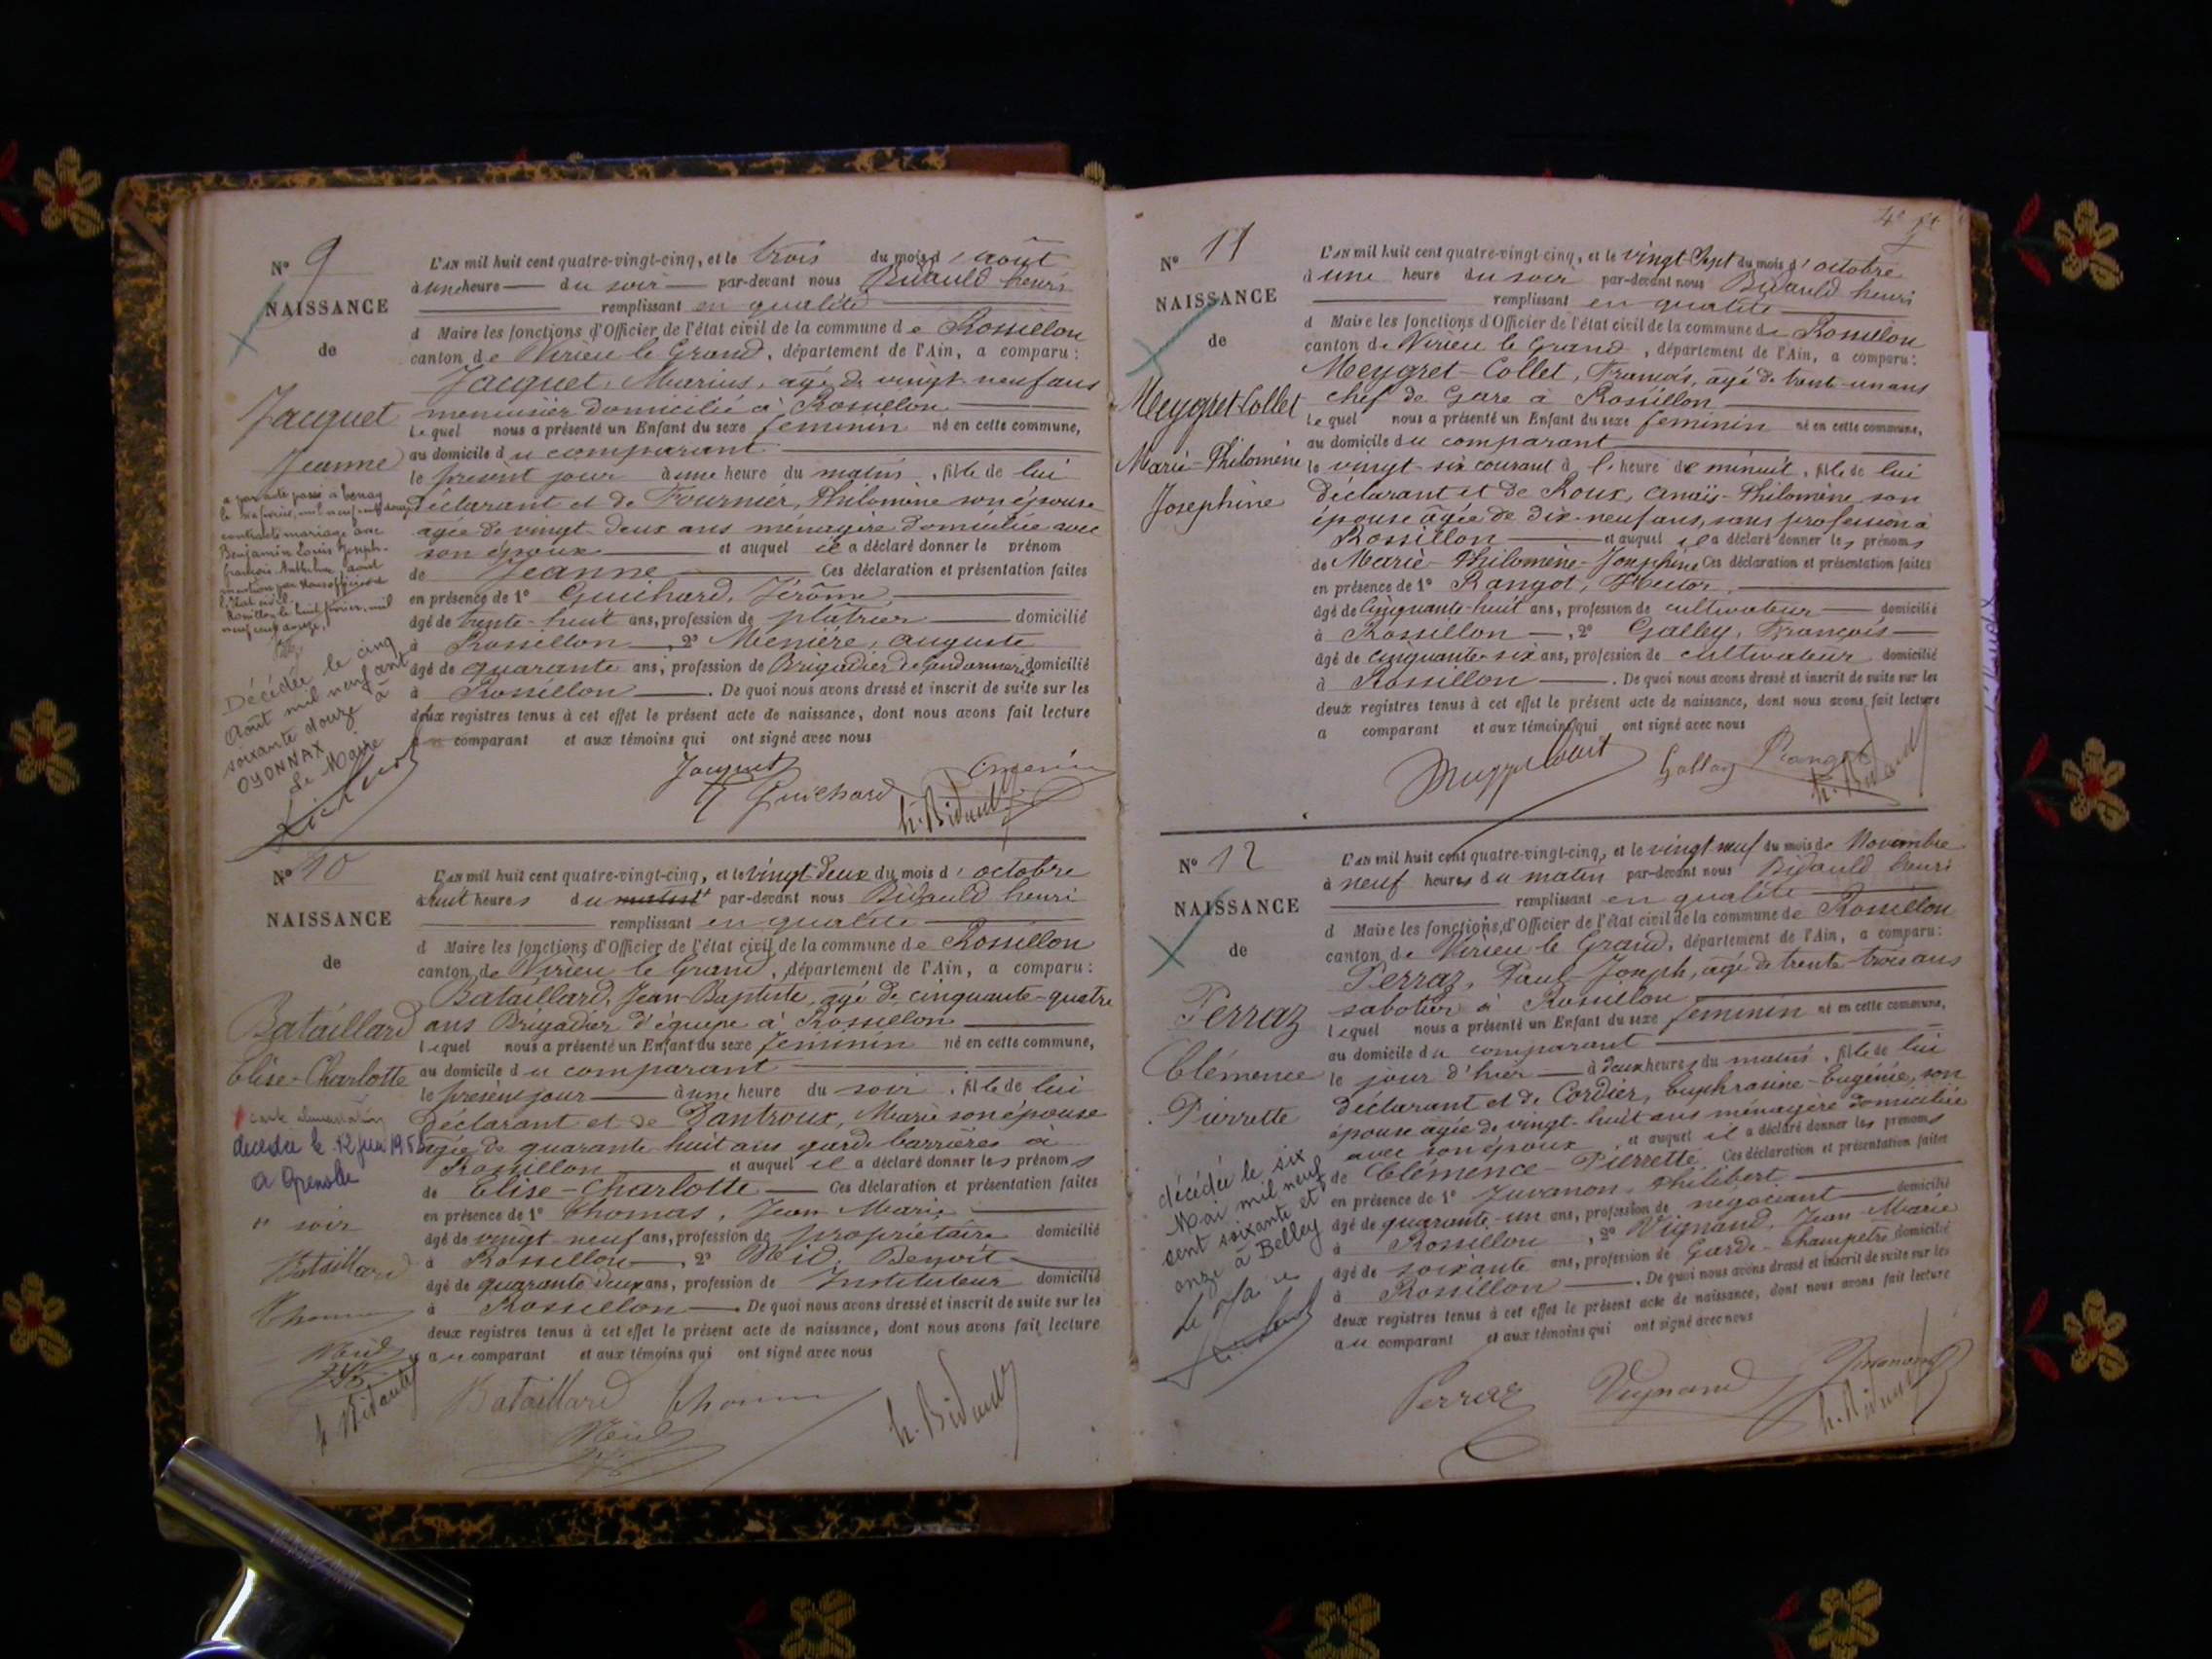 N° 9
NAISSANCE
de
Jacquet
Jeanne
L'AN mil huit cent quatre-vingt-cinq, et le trois du mois d'août
à une heure du soir par-devant nous Bidauld henri
remplissant en qualité
d Maire les fonctions d'Officier de l'état civil de la commune de Rossillon
canton de Virieu le Grand, département de l'Ain, a comparu :
Jacquet, Marius, âgé de vingt-neuf ans
menuisier domicilié à Rossillon
Lequel nous a présenté un Enfant du sexe feminin né en cette commune,
au domicile du comparant
le présent jour à une heure du matin, fille de lui
déclarant et de Fournier, Philomène son épouse
agée de vingt-deux ans ménagère domiciliée avec
son époux et auquel il a déclaré donner le prénom
de Jeanne Ces déclaration et présentation faites
en présence de 1° Guichard, Jérôme,
âgé de trente-huit ans, profession de plâtrier domicilié
à Rossillon, 2° Menière, auguste
âgé de quarante ans, profession de Brigadier de Gendarmerie domicilié
à Rossillon. De quoi nous avons dressé et inscrit de suite sur les
deux registres tenus à cet effet le présent acte de naissance, dont nous avons fait lecture
au comparant et aux témoins qui ont signé avec nous
Jacquet
Guichard
h. Bidauld
contracté mariage avec
Benjamin Louis Joseph-
Décédée le cinq
Août mil neuf cent
soixante douze à
OYONNAX
Le Maire
N° 10
NAISSANCE
de
Bataillard
Elise-Charlotte
L'AN mil huit cent quatre-vingt-cinq, et le vingt-deux du mois d'octobre
à huit heures du matin par-devant nous Bidauld henri
remplissant en qualité
d Maire les fonctions d'Officier de l'état civil de la commune de Rossillon
canton de Virieu le Grand, département de l'Ain, a comparu :
Bataillard, Jean-Baptiste, âgé de cinquante-quatre
ans Brigadier d'équipe à Rossillon
Lequel nous a présenté un Enfant du sexe feminin né en cette commune,
au domicile du comparant
le présent jour à une heure du soir, fille de lui
Déclarant et de Dantroux, Marie son épouse
agée de quarante-huit ans garde barrières à
Rossillon et auquel il a déclaré donner les prénoms
de Elise-Charlotte Ces déclaration et présentation faites
en présence de 1° Thomas, Jean Marie
âgé de vingt neuf ans, profession de propriétaire domicilié
à Rossillon, 2° Neid, Benoit
âgé de quarante deux ans, profession de Instituteur domicilié
à Rossillon. De quoi nous avons dressé et inscrit de suite sur les
deux registres tenus à cet effet le présent acte de naissance, dont nous avons fait lecture
au comparant et aux témoins qui ont signé avec nous
Bataillard Thomas
Neid
h. Bidauld
décédée le 12 juin
à Grenoble
" soir
Bataillard
Thomas
Neid
h. Bidauld
N° 11
NAISSANCE
de
Meygret-Collet
Marie-Philomène
Josephine
L'AN mil huit cent quatre-vingt-cinq, et le vingt-sept du mois d'octobre
à une heure du soir par-devant nous Bidauld henri
remplissant en qualité
d Maire les fonctions d'Officier de l'état civil de la commune de Rossillon
canton de Virieu le Grand, département de l'Ain, a comparu :
Meygret-Collet, François, âgé de trente-un ans
chef de Gare à Rossillon
Lequel nous a présenté un Enfant du sexe feminin né en cette commune,
au domicile du comparant
le vingt-six courant à l'heure de minuit, fille de lui
déclarant et de Roux, Anaïs-Philomène, son
épouse âgée de dix-neuf ans, sans profession à
Rossillon et auquel il a déclaré donner les prénoms
de Marie-Philomène-Josephine Ces déclaration et présentation faites
en présence de 1° Rangot, Hector,
âgé de cinquante-huit ans, profession de cultivateur domicilié
à Rossillon, 2° Galley, François
âgé de cinquante-six ans, profession de cultivateur domicilié
à Rossillon. De quoi nous avons dressé et inscrit de suite sur les
deux registres tenus à cet effet le présent acte de naissance, dont nous avons fait lecture
a comparant et aux témoins qui ont signé avec nous
Galley Rangot
h. Bidauld
N° 12
NAISSANCE
de
Perraz
Clémence
Pierrette
L'AN mil huit cent quatre-vingt-cinq, et le vingt neuf du mois de Novembre
à neuf heures du matin par-devant nous Bidauld henri
remplissant en qualité
d Maire les fonctions d'Officier de l'état civil de la commune de Rossillon
canton de Virieu le Grand, département de l'Ain, a comparu :
Perraz, Paul-Joseph, âgé de trente-trois ans
sabotier à Rossillon
lequel nous a présenté un Enfant du sexe feminin né en cette commune,
au domicile du comparant
le jour d'hier à deux heures du matin, fille de lui
déclarant et de Cordier, Euphrasine-Eugénie, son
épouse agée de vingt-huit ans ménagère domiciliée
avec son époux, et auquel il a déclaré donner les prénoms
de Clémence-Pierrette Ces déclaration et présentation faites
en présence de 1° Juvanon, Philibert
âgé de quarante-un ans, profession de négociant domicilié
à Rossillon, 2° Vignand, Jean-Marie
âgé de soixante ans, profession de Garde-champetre domicilié
à Rossillon. De quoi nous avons dressé et inscrit de suite sur les
deux registres tenus à cet effet le présent acte de naissance, dont nous avons fait lecture
au comparant et aux témoins qui ont signé avec nous
Perraz Vignand Juvanon
h. Bidauld
décédée le six
Mai mil neuf
cent soixante et
onze à Belley
Le Maire